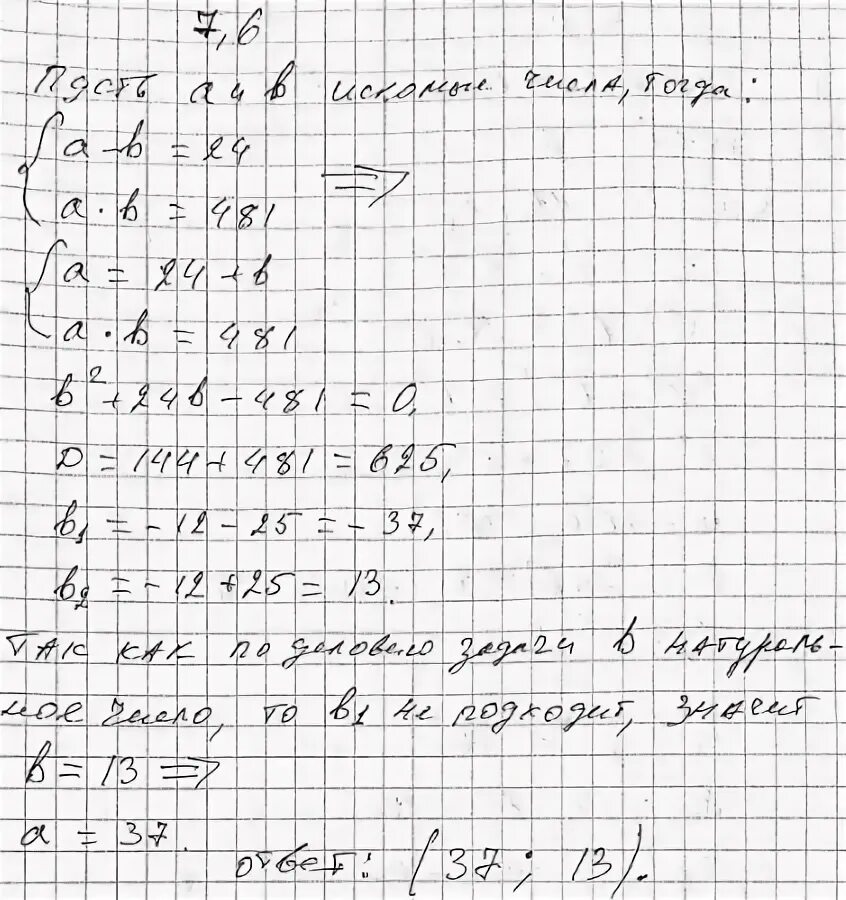 7,6
Пусть a и b искомые числа, тогда:
{ a - b = 24
a · b = 481 ⟹
{ a = 24 + b
a · b = 481
b² + 24b - 481 = 0,
D = 144 + 481 = 625,
b₁ = - 12 - 25 = - 37,
b₂ = - 12 + 25 = 13.
Так как по условию задачи b натураль-
ное число, то b₁ не подходит, значит
b = 13 ⟹
a = 37.
ответ: (37; 13).